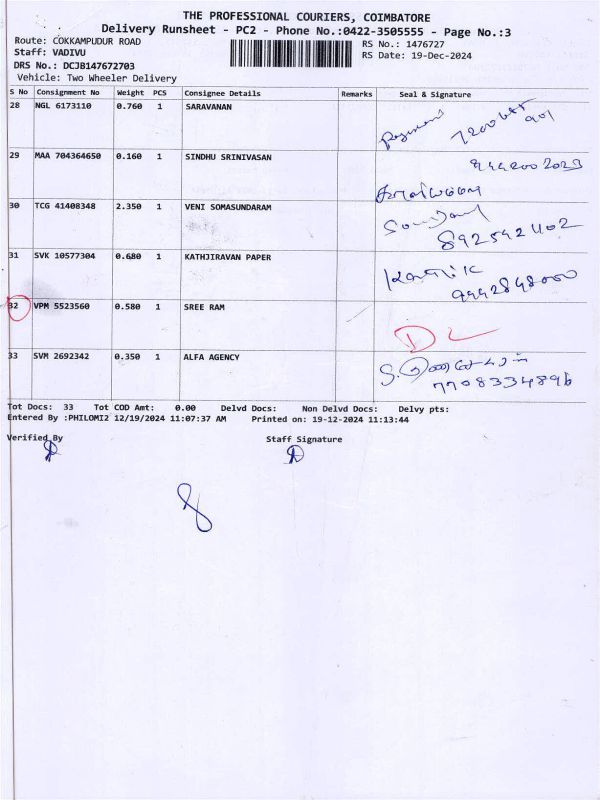 THE PROFESSIONAL COURIERS, COIMBATORE
Delivery Runsheet - PC2 - Phone No.:0422-3505555 - Page No.:3
Route: COKKAMPUDUR ROAD
RS No.: 1476727
Staff: VADIVU
RS Date: 19-Dec-2024
DRS No.: DCJB147672703
Vehicle: Two Wheeler Delivery
S No Consignment No Weight PCS Consignee Details Remarks Seal & Signature
28 NGL 6173110 0.760 1 SARAVANAN
29 MAA 704364650 0.160 1 SINDHU SRINIVASAN
30 TCG 41408348 2.350 1 VENI SOMASUNDARAM
8925921102
31 SVK 10577304 0.680 1 KATHJIRAVAN PAPER
32 VPM 5523560 0.580 1 SREE RAM
DL
33 SVM 2692342 0.350 1 ALFA AGENCY
7708334896
Tot Docs: 33 Tot COD Amt: 0.00 Delvd Docs: Non Delvd Docs: Delvy pts:
Entered By :PHILOMI2 12/19/2024 11:07:37 AM Printed on: 19-12-2024 11:13:44
Verified By Staff Signature